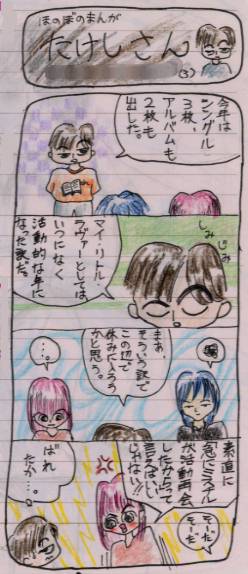 ほのぼのまんが
たけしさん
(3)
今年は
シングル
3枚、
アルバムも
2枚も
出した。
しみじみ
マイ・リトル・
ラヴァーとしては
いつになく
活動的な年に
なった訳だ。
まあ、
そういう訳で
この辺で
休みに入ろう
かと思う。
…。
素直に
急にミスチル
が活動再会
したからって
言えばいい
じゃない!!
そーだ
そーだ
ばれ
たか…。